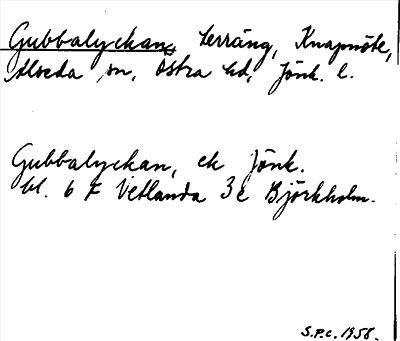 Gubbalyckan, terräng, Knapnöte,
Alseda sn, Östra hd, Jönk. l.
Gubbalyckan, ek Jönk.
bl. 6 F Vetlanda 3 c Björkholm.
S.P.C. 1958.